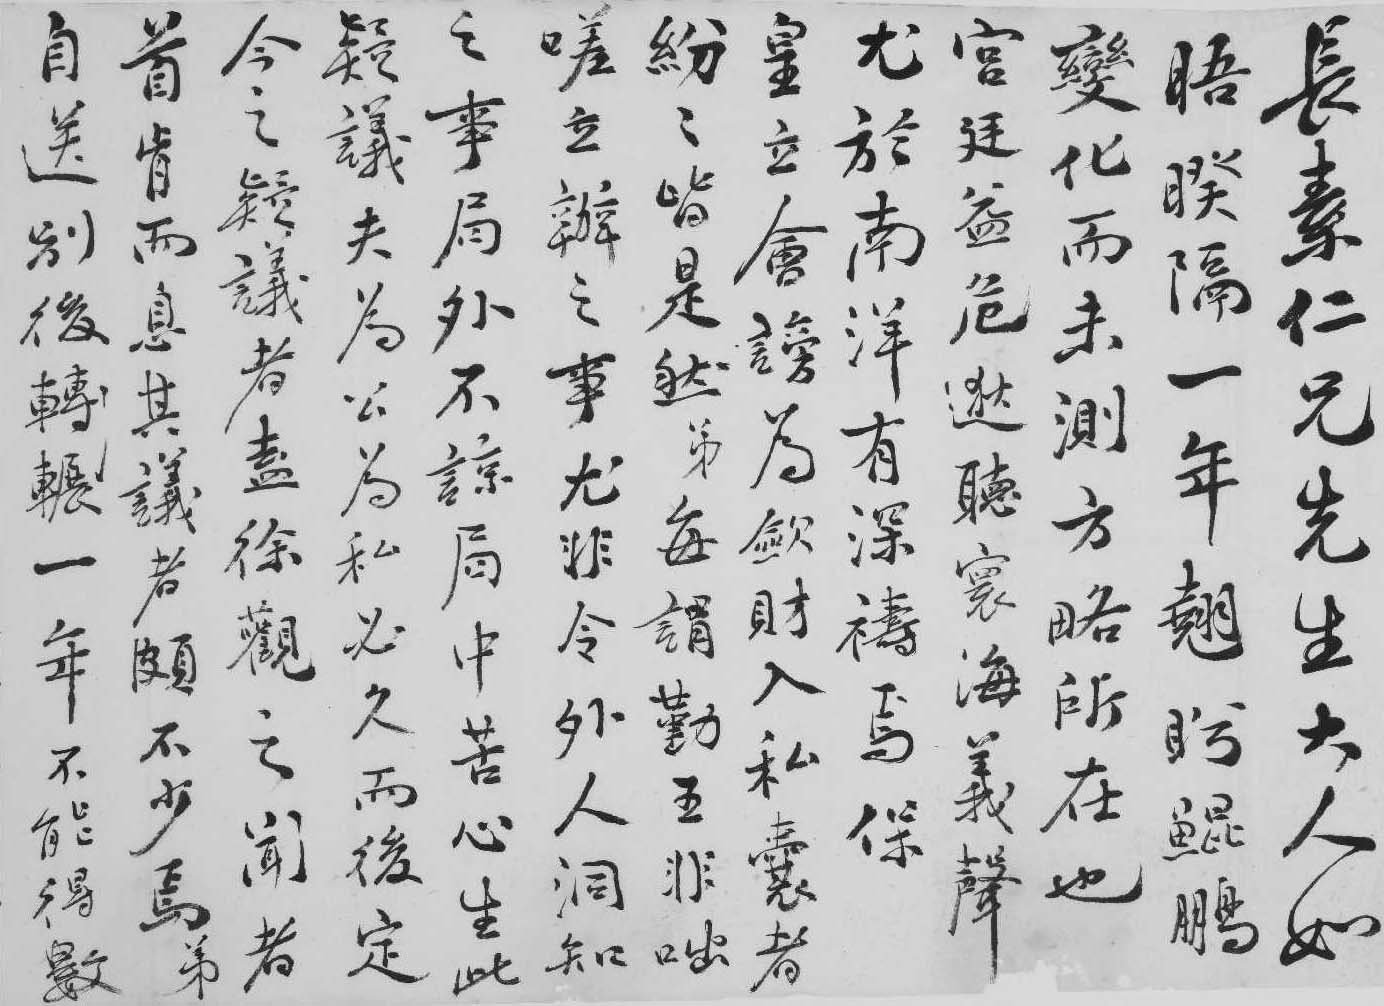 長素仁兄先生大人如
晤暌隔一年翹盻鯤鵬
變化而未測方略所在也
宮廷益危逖聽寰海義聲
尤於南洋有深禱焉保
皇立會謗為斂財入私囊者
紛〻皆是然弟每謂勤王非咄
嗟立辦之事尤非令外人洞知
之事局外不諒局中苦心生此
疑議夫為公為私必久而後定
今之疑議者盍徐觀之聞者
首肯而息其議者頗不少焉弟
自送別後轉輾一年不能得數